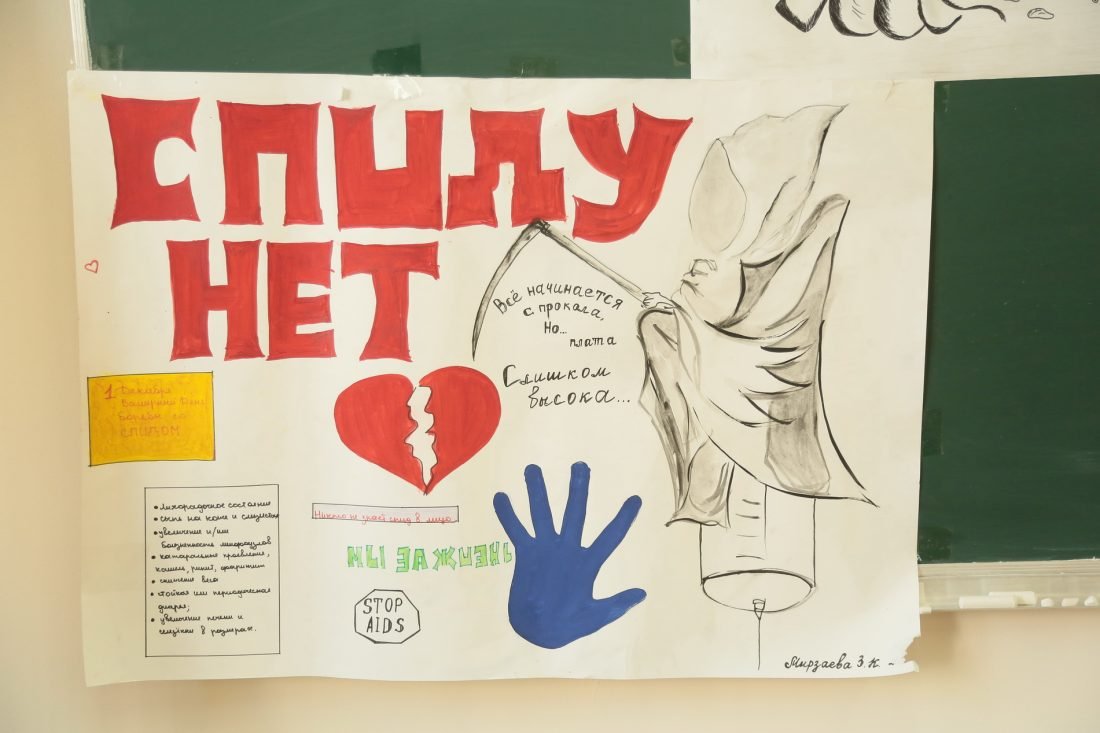 СПИДУ
НЕТ
Всё начинается
с прокола,
Но...
плата
Слишком
высока...
1 Декабря
Всемирный День
борьбы со
СПИДОМ
• лихорадочное состояние
• сыпь на коже и слизистых
• увеличение и/или
болезненность лимфоузлов
• катаральные проявления,
кашель, ринит, фарингит
• снижение веса
• стойкая или периодическая
диарея;
• увеличение печени и
селезёнки в размерах.
Никто не знает спид в лицо
МЫ ЗА ЖИЗНЬ
STOP
AIDS
Мирзаева З.К.